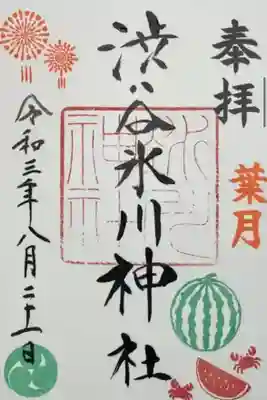 奉拝
葉月
渋谷氷川神社
令和三年八月二十一日